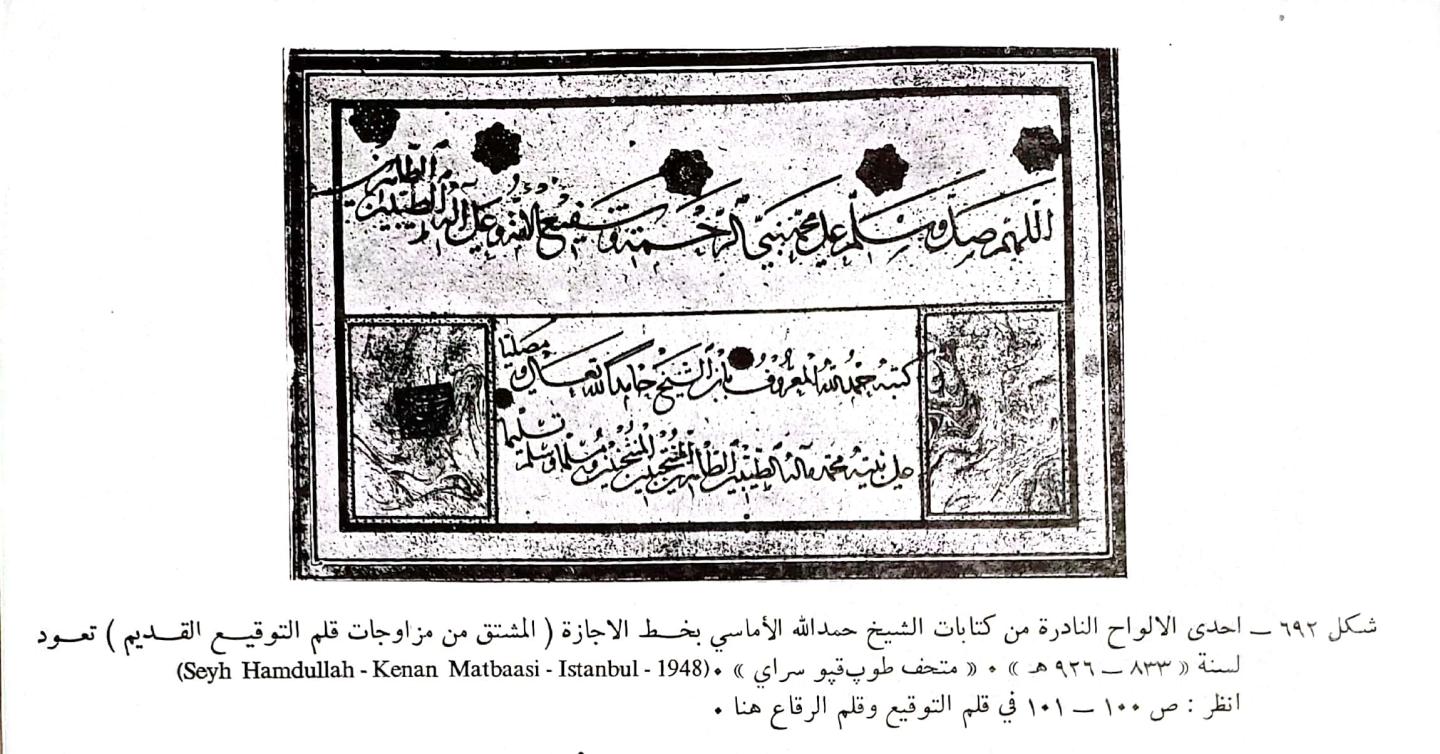 اللهم صل وسلم على محمد نبي الرحمة وشفيع الامة وعلى آله الطيبين الطاهرين
كتبه حمد الله المعروف بابن الشيخ حامدا لله تعالى و مصليا
على نبيه محمد وآله الطيبين الطاهرين المنتجبين ومسلما وسلم تسليما
شكل ٦٩٢ ــ احدى الالواح النادرة من كتابات الشيخ حمدالله الأماسي بخط الاجازة ( المشتق من مزاوجات قلم التوقيع القديم ) تعود
لسنة « ٨٣٣ ــ ٩٢٦ هـ » ٠ « متحف طوپ‌قپو سراي » ٠(Seyh Hamdullah - Kenan Matbaasi - Istanbul - 1948)
انظر : ص ١٠٠ ــ ١٠١ في قلم التوقيع وقلم الرقاع هنا ٠